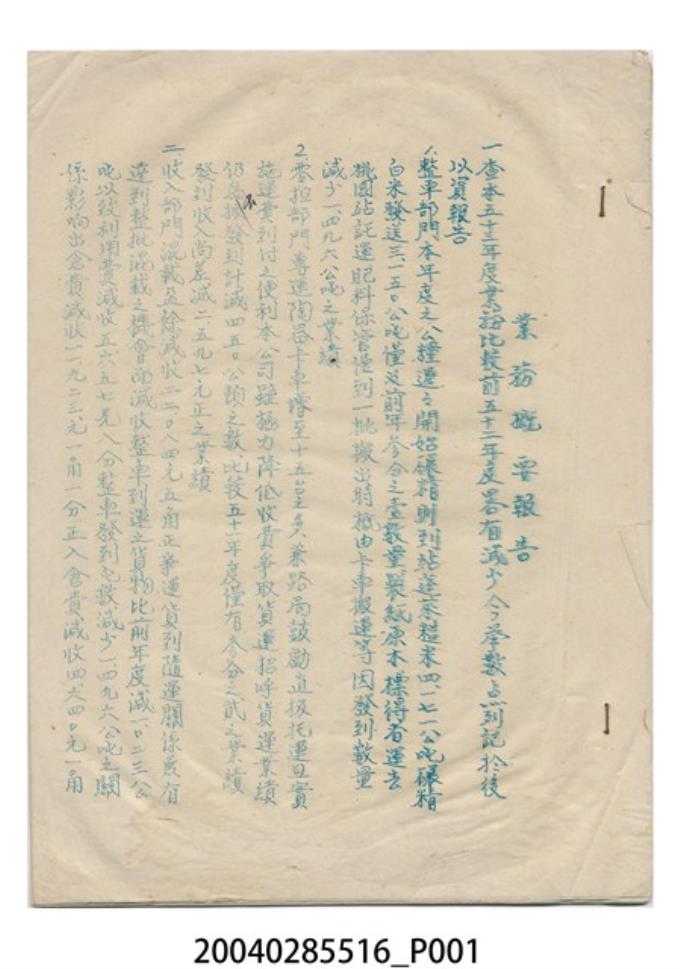 業務概要報告
一查本五十三年度業務比較前五十二年度畧有減少今舉數点列記於後
以資報告
1.整車部門本年度之公糧遲之開始碾精則到站蓬萊糙米四、七一公吨碾精
白米發送三、一五〇公吨僅及前年參分之壹數量製紙原木標得者運去
桃園站託運肥料保管僅到一批搬出時概由卡車搬運等因發到數量
減少一、四九六公吨之業績
2.零担部門專運陶器卡車增至十五台之多兼路局鼓勵直接托運且實
施運費到付之便利本公司雖極力降低收費爭取貨運招呼貨運業績
仍不振發到計減四五〇公噸之數比較五十一年度僅有參分之貳之業績
發到收入尚差減二五九七元正之業績
二收入部門混載盈餘減收二二〇八四元五角正爭運貨到隨運關係薎有
達到整批混載之機會而減收整車到運之貨物比前年度減一〇二三公
吨以致利用費減收五六五七元八分整車發到屯數減少一、四九六公吨之關
係影响出倉費減收一一、九二三、元一角一分正入倉費減收四六四〇元一角
20040285516_P001